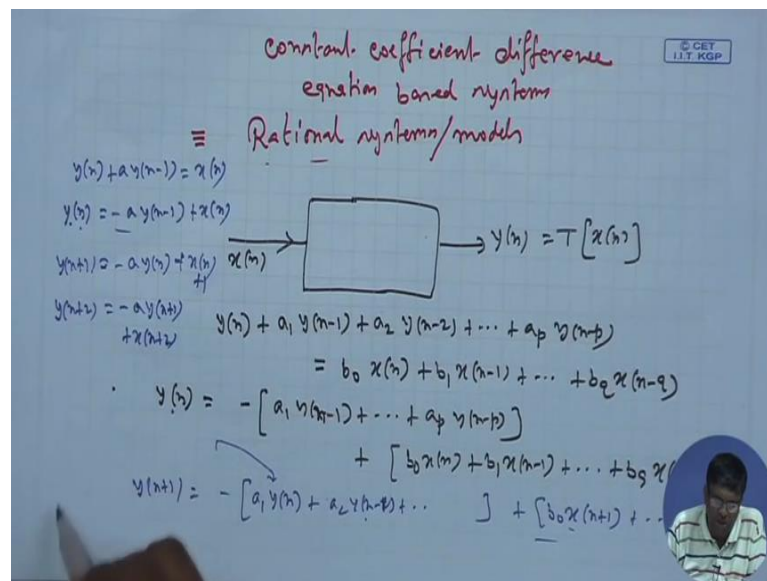 constant coefficient difference
equation based systems
© CET
I.I.T. KGP
≡ Rational systems/models
y(n) + a y(n-1) = x(n)
y(n) = -a y(n-1) + x(n)
y(n+1) = -a y(n) + x(n+1)
y(n+2) = -a y(n+1)
+ x(n+2)
x(n)
y(n) = T[x(n)]
y(n) + a₁ y(n-1) + a₂ y(n-2) + ... + aₚ y(n-p)
= b₀ x(n) + b₁ x(n-1) + ... + b_q x(n-q)
y(n) = -[a₁ y(n-1) + ... + aₚ y(n-p)]
+ [b₀ x(n) + b₁ x(n-1) + ... + b_q x(
y(n+1) = -[a₁ y(n) + a₂ y(n-1) + .. ] + [b₀ x(n+1) + ..